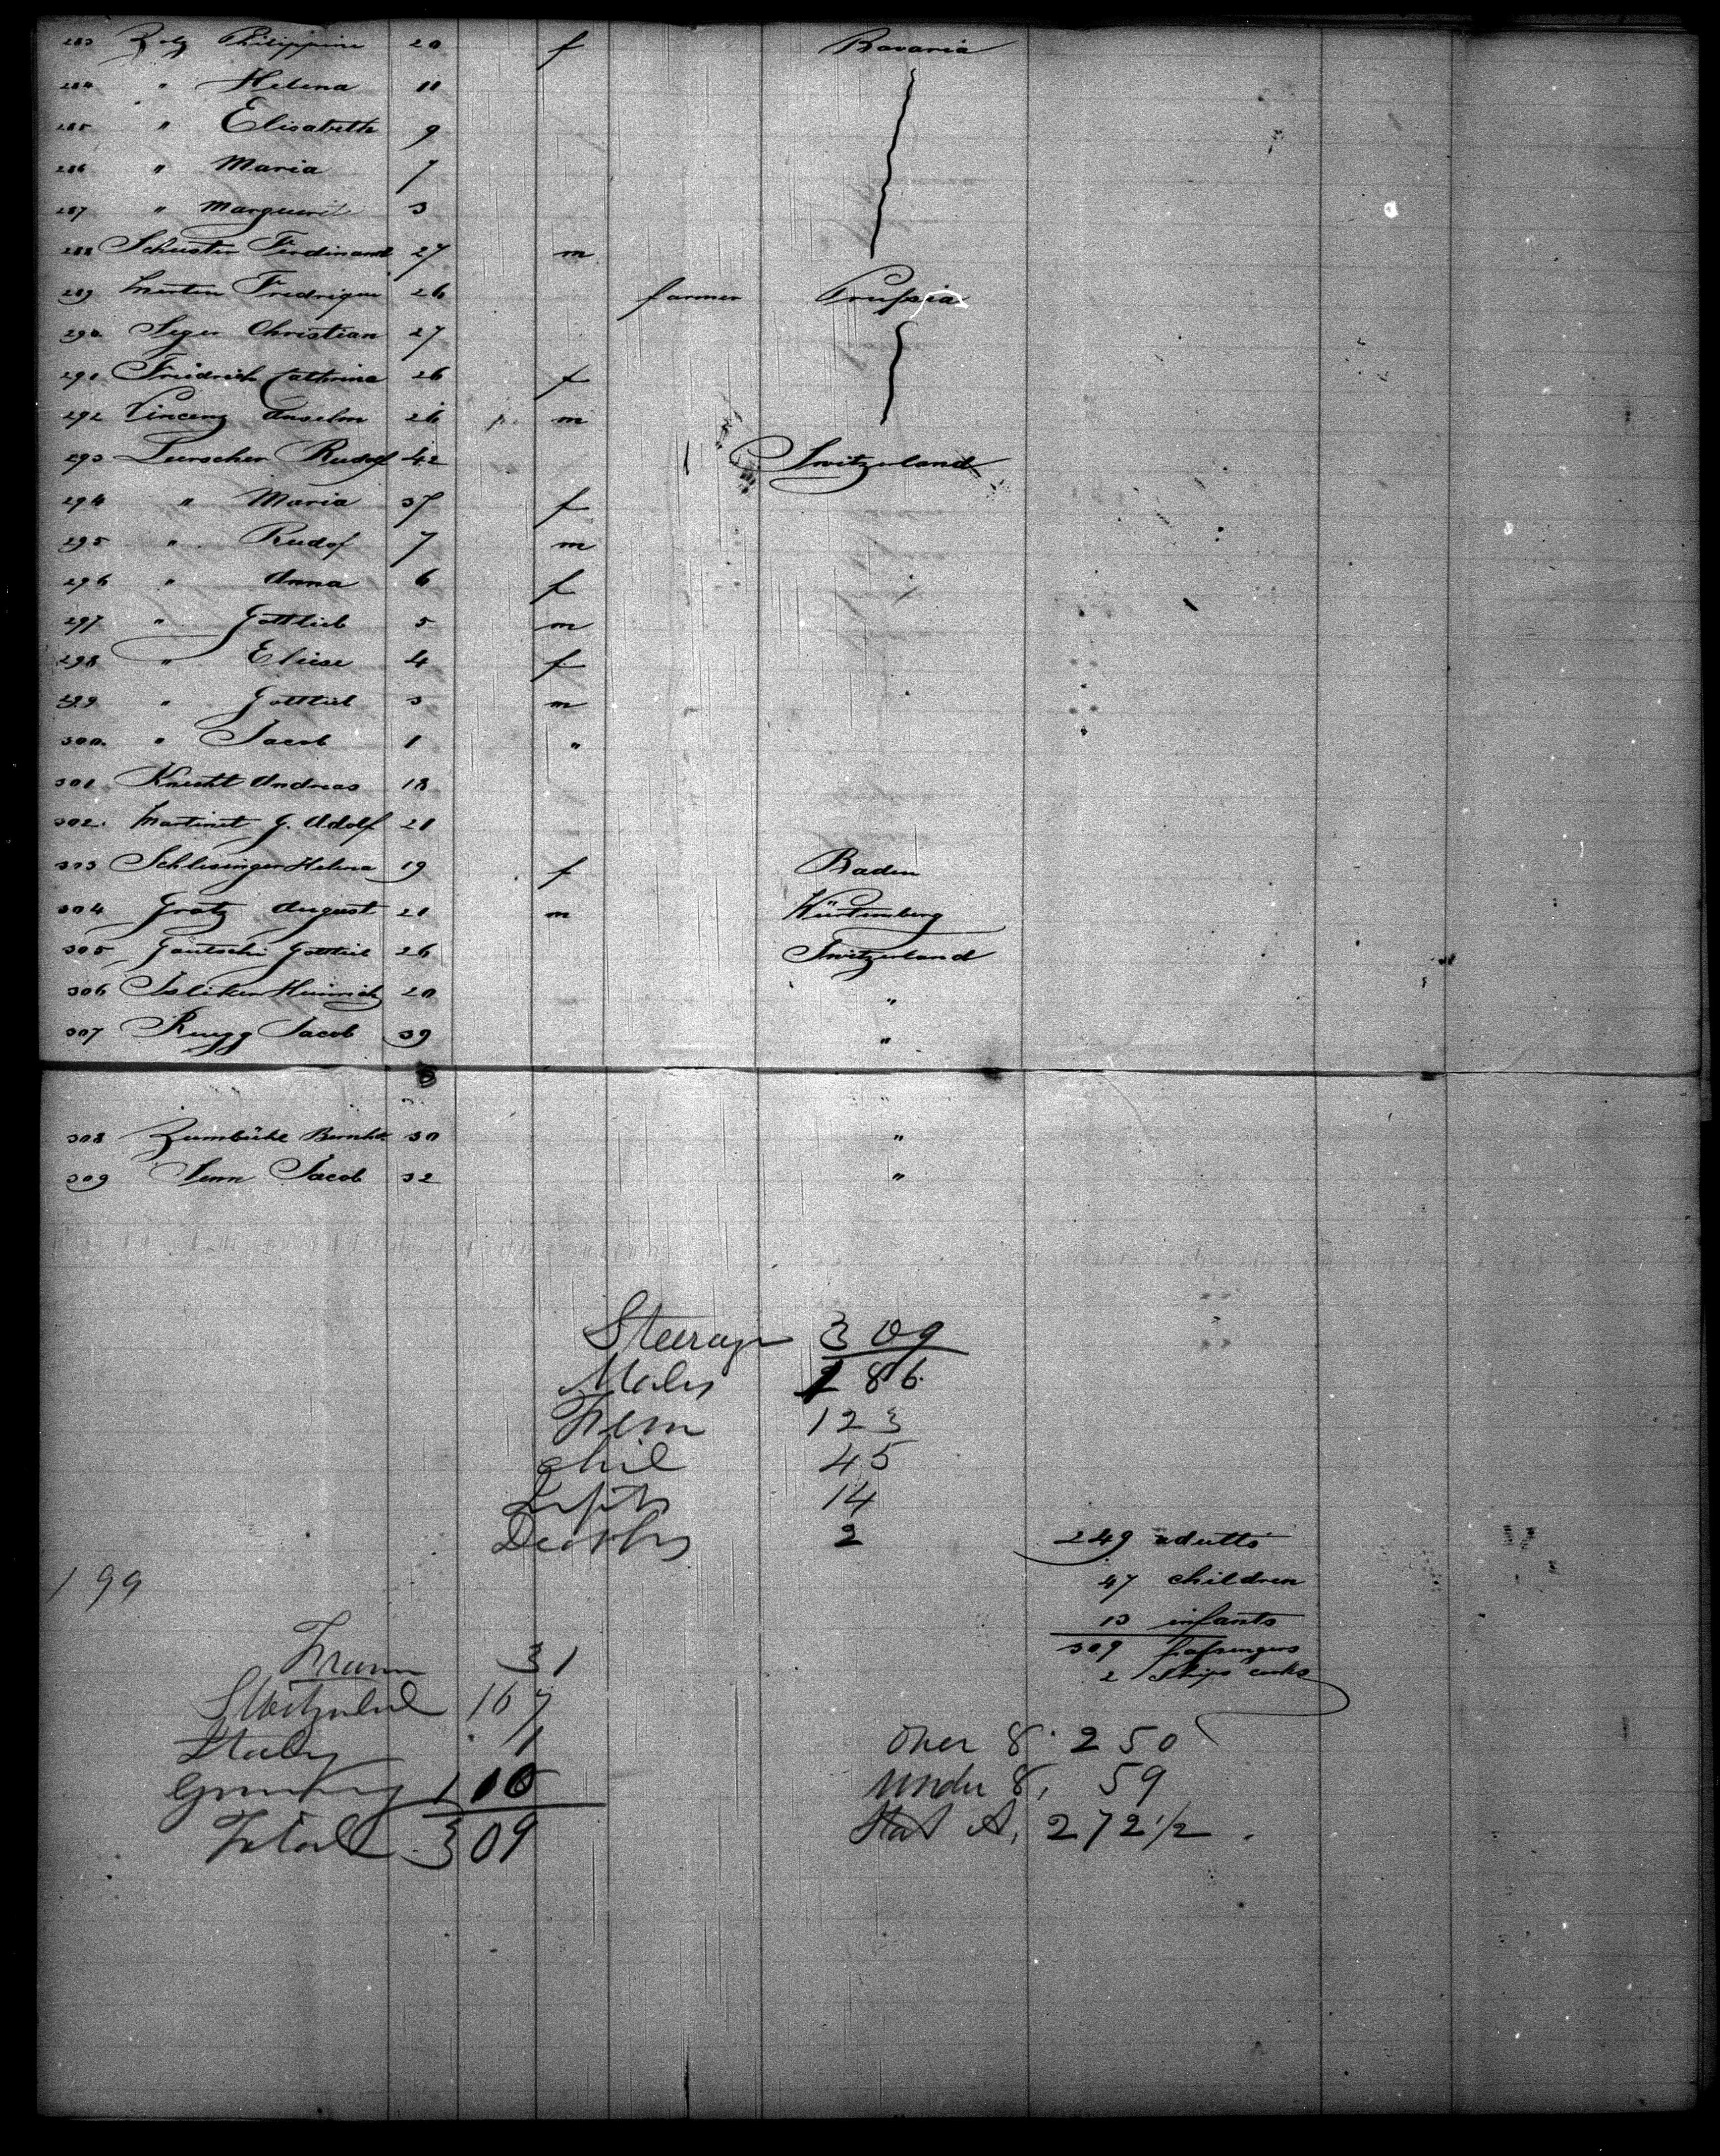 283 Zolg Philippine 20 f Bavaria
284 " Helena 11
285 " Elisabeth 9
286 " Maria 7
287 " Marguerit 3
288 Schuster Ferdinand 27 m
289 Merten Fredrique 26 farmer Prussia
290 Seger Christian 27
291 Friedrich Cathrina 26 f
292 Vincenz Anselm 26 m
293 Luerscher Rudolf 42 Switzerland
294 " Maria 37 f
295 " Rudof 7 m
296 " Anna 6 f
297 " Gottlieb 5 m
298 " Eliese 4 f
299 " Gottlieb 3 m
300 " Jacob 1 "
301 Knecht Andreas 18
302 Martinet G. Adolf 21
303 Schlesinger Helena 19 f Baden
304 Gratz August 21 m Würtemberg
305 Gautschi Gottlieb 26 Switzerland
306 Isliker Heinrich 20 "
307 Ruegg Jacob 39 "
308 Zumbühl Bernhd 30 "
309 Senn Jacob 32 "
Steerage 309
Males 186
Fem 123
chil 45
Infts 14
Deaths 2
249 adults
47 children
13 infants
309 passengers
2 Ships cooks
199
France 31
Switzerland 167
Italy 1
Germany 110
Total 309
Over 8. 250
Under 8, 59
Stat A, 272 1/2